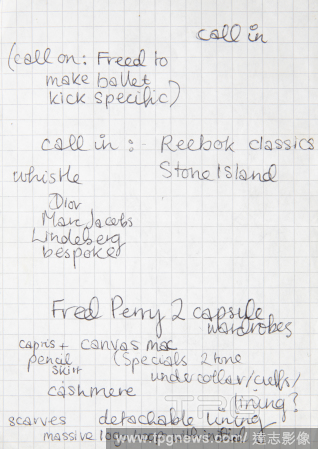 call in
(call on: Freed to
make ballet
kick specific)
call in :- Reebok classics
whistle Stone Island
Dior
Marc Jacobs
Lindeberg
bespoke
Fred Perry 2 capsule
wardrobes
capris + canvas mac
pencil (Specials 2 tone
skirt undercollar/cuffs/
cashmere lining?
scarves detachable lining
massive
www.tpgnews.com/達志影像